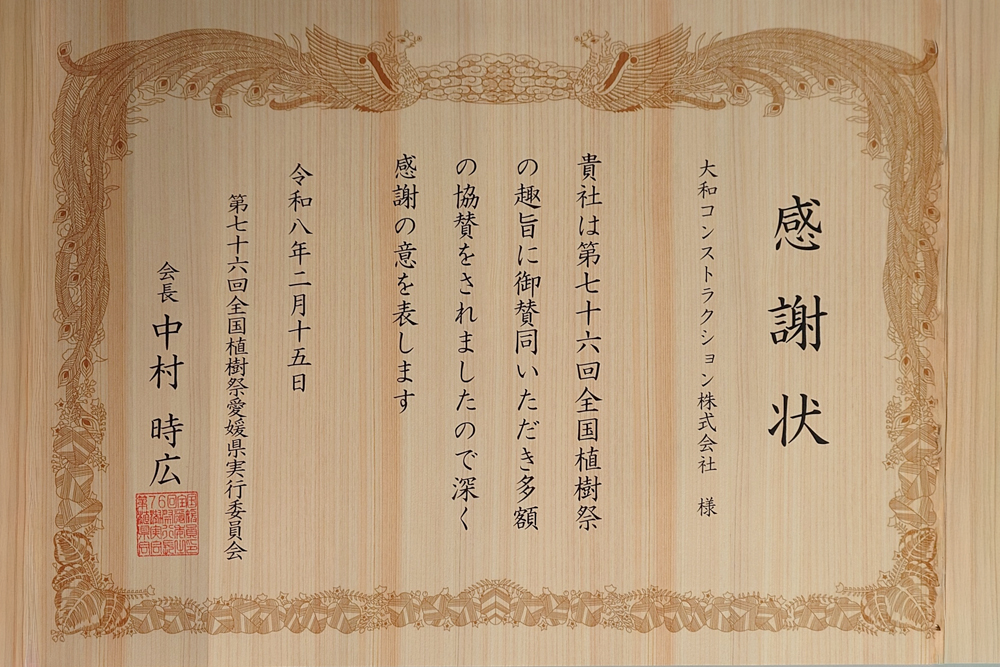 感謝状
大和コンストラクション株式会社 様
貴社は第七十六回全国植樹祭
の趣旨に御賛同いただき多額
の協賛をされましたので深く
感謝の意を表します
令和八年二月十五日
第七十六回全国植樹祭愛媛県実行委員会
会長 中村 時広